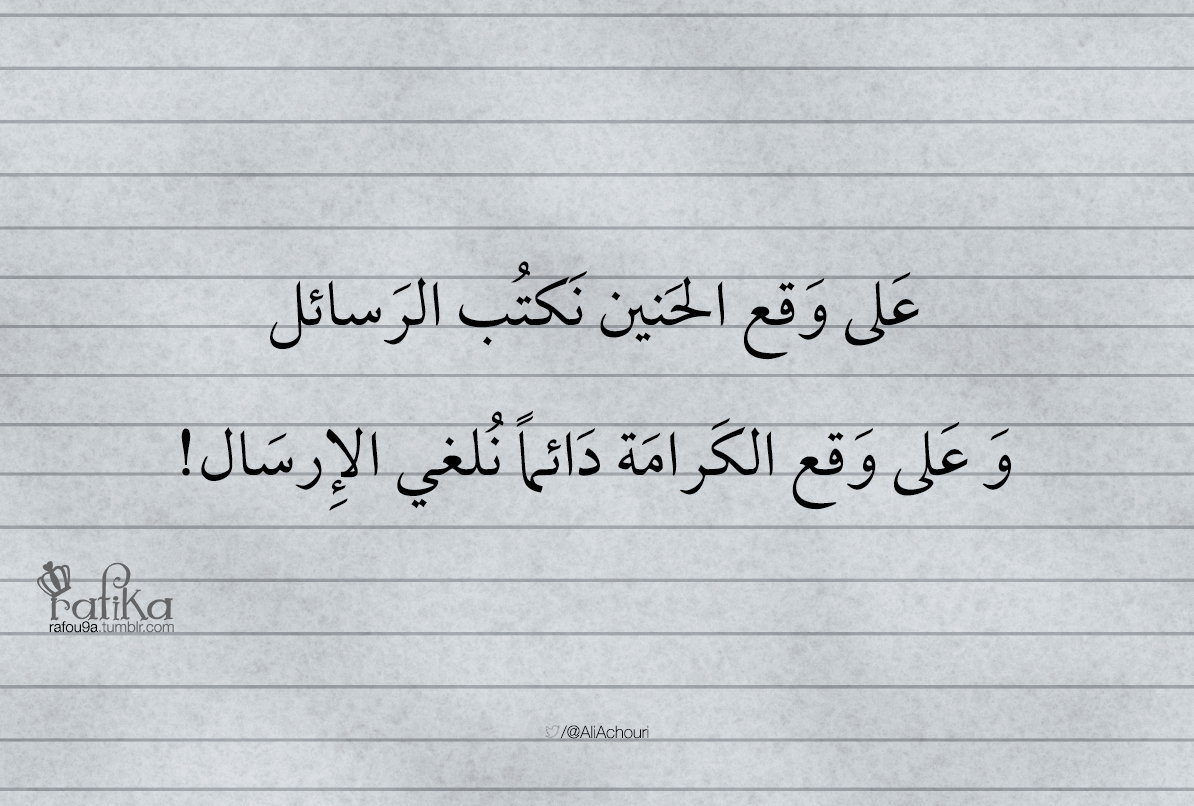 عَلى وَقع الحَنين نَكتُب الرَسائل
وَ عَلى وَقع الكَرامَة دَائماً نُلغي الإِرسَال!
rafika
rafou9a.tumblr.com
/@AliAchouri